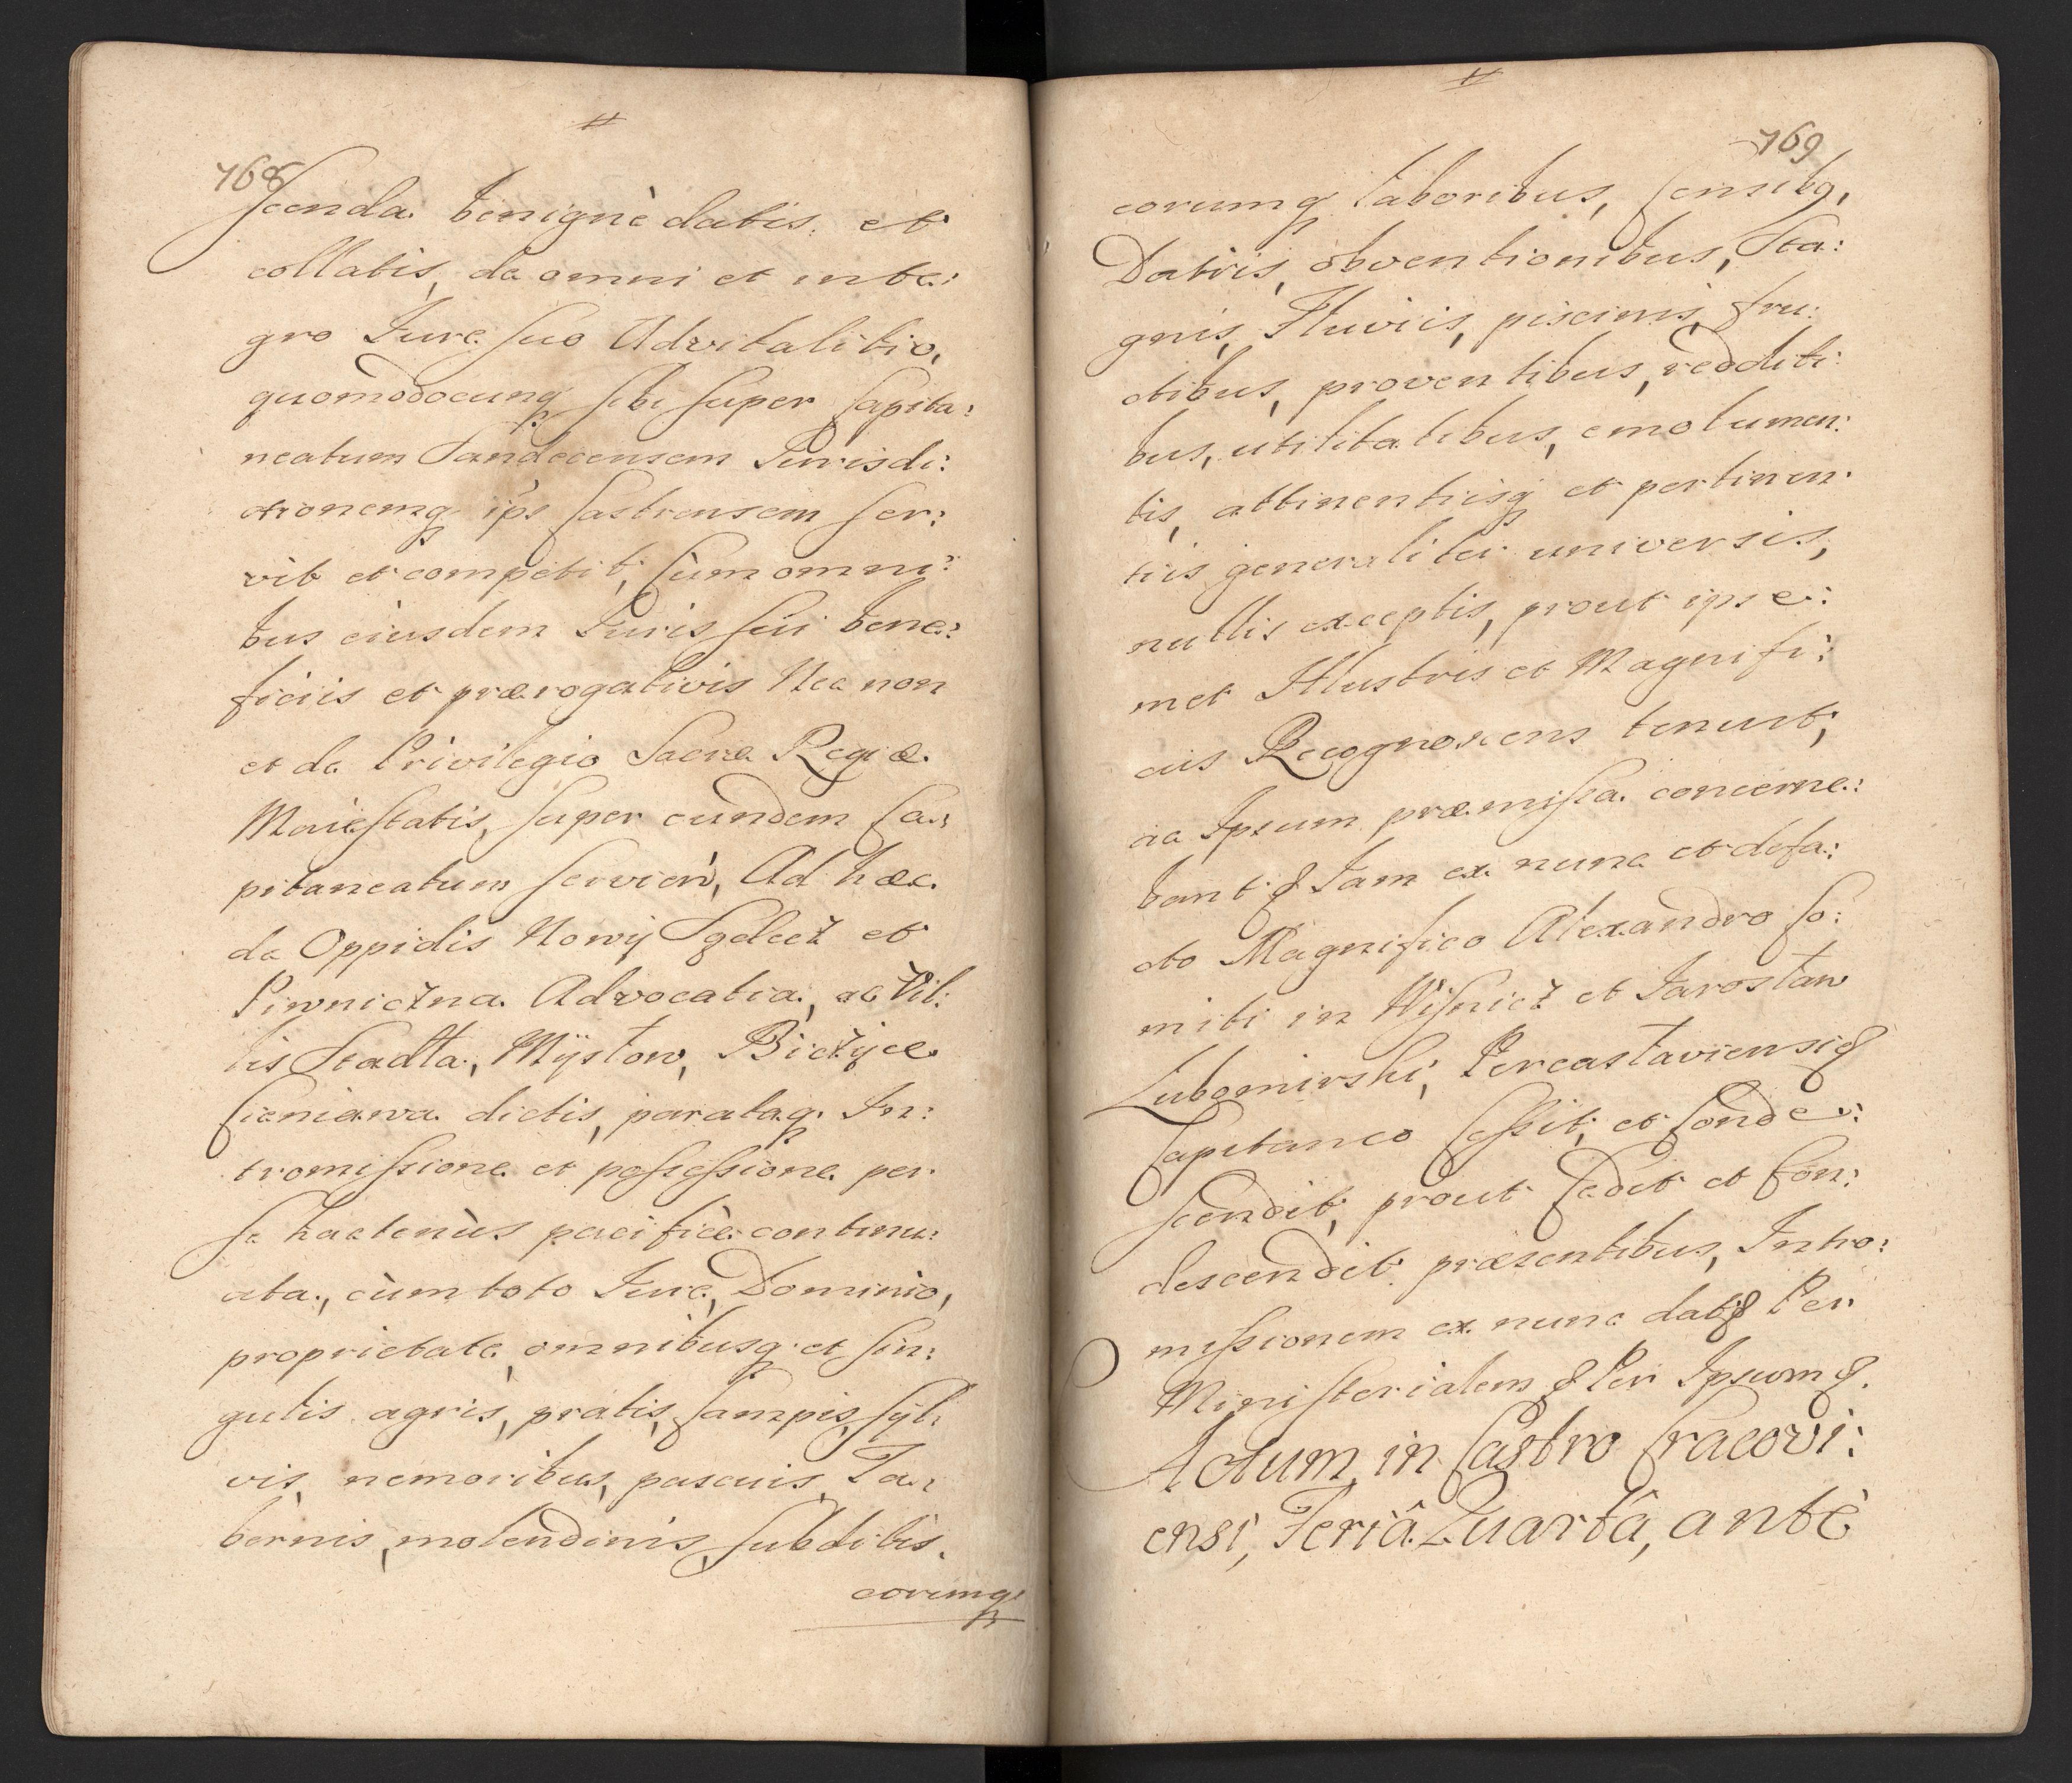 #
768
scenda benignè datis, et
collatis, de omni et inte:
gro Iure suo Advitalitio,
quomodocunq sibi super Capita:
neatum Sandecensem Iurisdi:
ctionemq ips Castrensem ser:
vit et competit, cùm omni:
bus eiusdem Iuris sui bene:
ficiis et prærogativis Nec non
et de Privilegio Sacræ Regiæ
Maiestatis, super eundem Ca:
pitaneatum servien, Ad hæc
de Oppidis Nowy Sgdecz et
Piwniczna Advocatia, ac Vil:
lis Stadła, Mystow, Biczyce
Cieniawa dictis, parataq. In:
tromissione et possessione per
se hactenùs pacificè continu:
ata, cùm toto Iure, Dominio,
proprietate, omnibusq. et sin:
gulis agris, pratis, campis, syl:
vis, nemoribus, pascuis, Ta:
bernis, molendinis, subditis,
corumq
#
769
corumq laboribus, censibq,
Datiis, obventionibus, Sta:
gnis, Fluviis, piscinis, fru:
ctibus, proventibus, redditi:
bus, utilitatibus, emolumen:
tis, attinentiisq et pertinen:
tiis generaliter universis,
nullis exceptis, prout ipse:
met Illustris et Magnifi:
cus Recognoscens tenuit,
ac Ipsum præmissa concerne:
bant & Iam ex nunc et defa:
cto Magnifico Alexandro Co:
miti in Wisnicz et Iarosław
Lubomirski, Pereasłaviensi &
Capitaneo Cessit, et Conde:
scendit, prout Cedit et Con:
descendit præsentibus, Intro:
missionem ex nunc dat & Per
Ministerialem & Per Ipsum &.
Actum in Castro Cracovi:
ensi, Feriâ Quartâ, antè